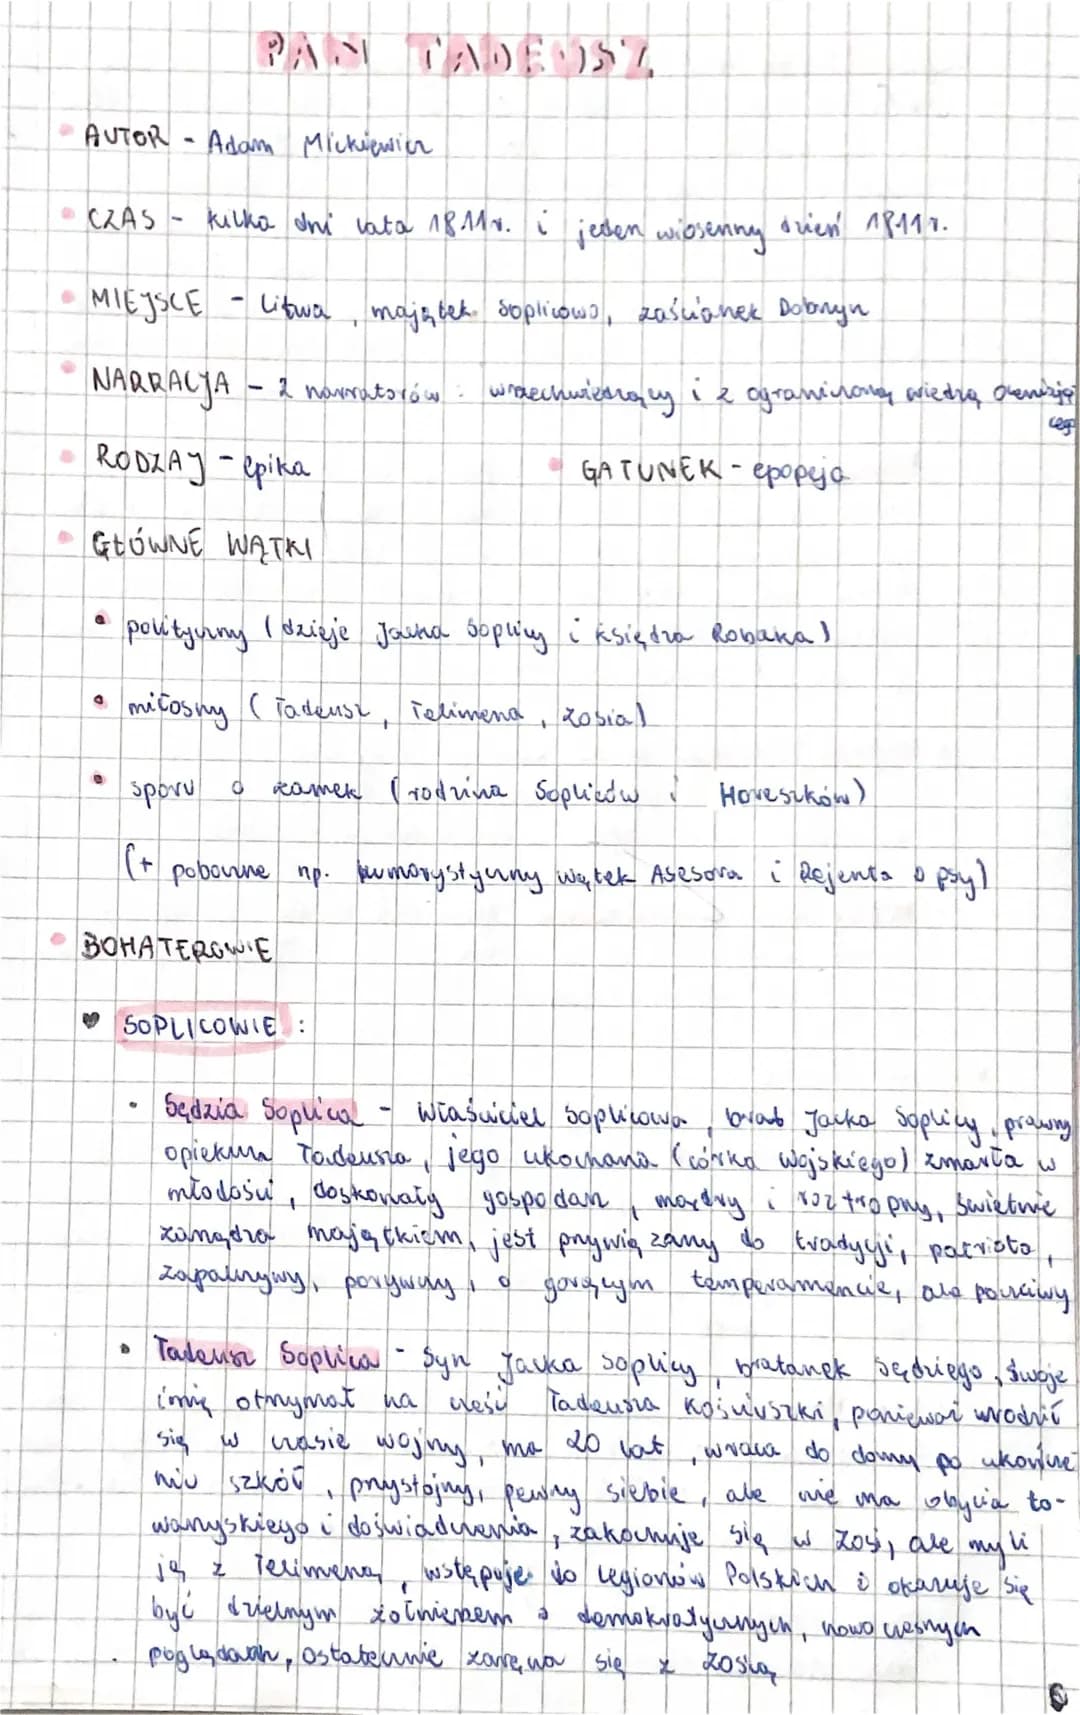 PAN TADEUSZ
• AUTOR - Adam Mickiewicz
• CZAS - kilka dni lata 1811r. i jeden wiosenny dzień 1811r.
• MIEJSCE - Litwa, majątek Soplicowo, zaścianek Dobrzyn
• NARRACJA - 2 narratorów: wszechwiedzący i z ograniczoną wiedzą
• RODZAJ - epika
• GATUNEK - epopeja
• GŁÓWNE WĄTKI
• polityczny (dzieje Jacka Soplicy i księdza Robaka)
• miłosny (Tadeusz, Telimena, Zosia)
• sporu o zamek (rodzina Sopliców i Horeszków)
(+ poboczne np. humorystyczny wątek Asesora i Rejenta o psy)
• BOHATEROWIE
♥ SOPLICOWIE:
• Sędzia Soplica - właściciel Soplicowa, brat Jacka Soplicy, prawny
opiekun Tadeusza, jego ukochana (córka Wojskiego) zmarła w
młodości, doskonały gospodarz, mądry i roztropny, świetnie
zarządza majątkiem, jest przywiązany do tradycji, patriota,
zapalczywy, porywczy, o gorącym temperamencie, ale poczciwy
• Tadeusz Soplica - syn Jacka Soplicy, bratanek Sędziego, swoje
imię otrzymał na cześć Tadeusza Kościuszki, ponieważ urodził
się w czasie wojny, ma 20 lat, wraca do domy po ukończe
niu szkół, przystojny, pewny siebie, ale nie ma obycia to-
warzyskiego i doświadczenia, zakochuje się w Zosi, ale myli
ją z Telimeną, wstępuje do Legionów Polskich i okazuje się
być dzielnym żołnierzem o demokratycznych, nowoczesnych
poglądach, ostatecznie zaręcza się z Zosią